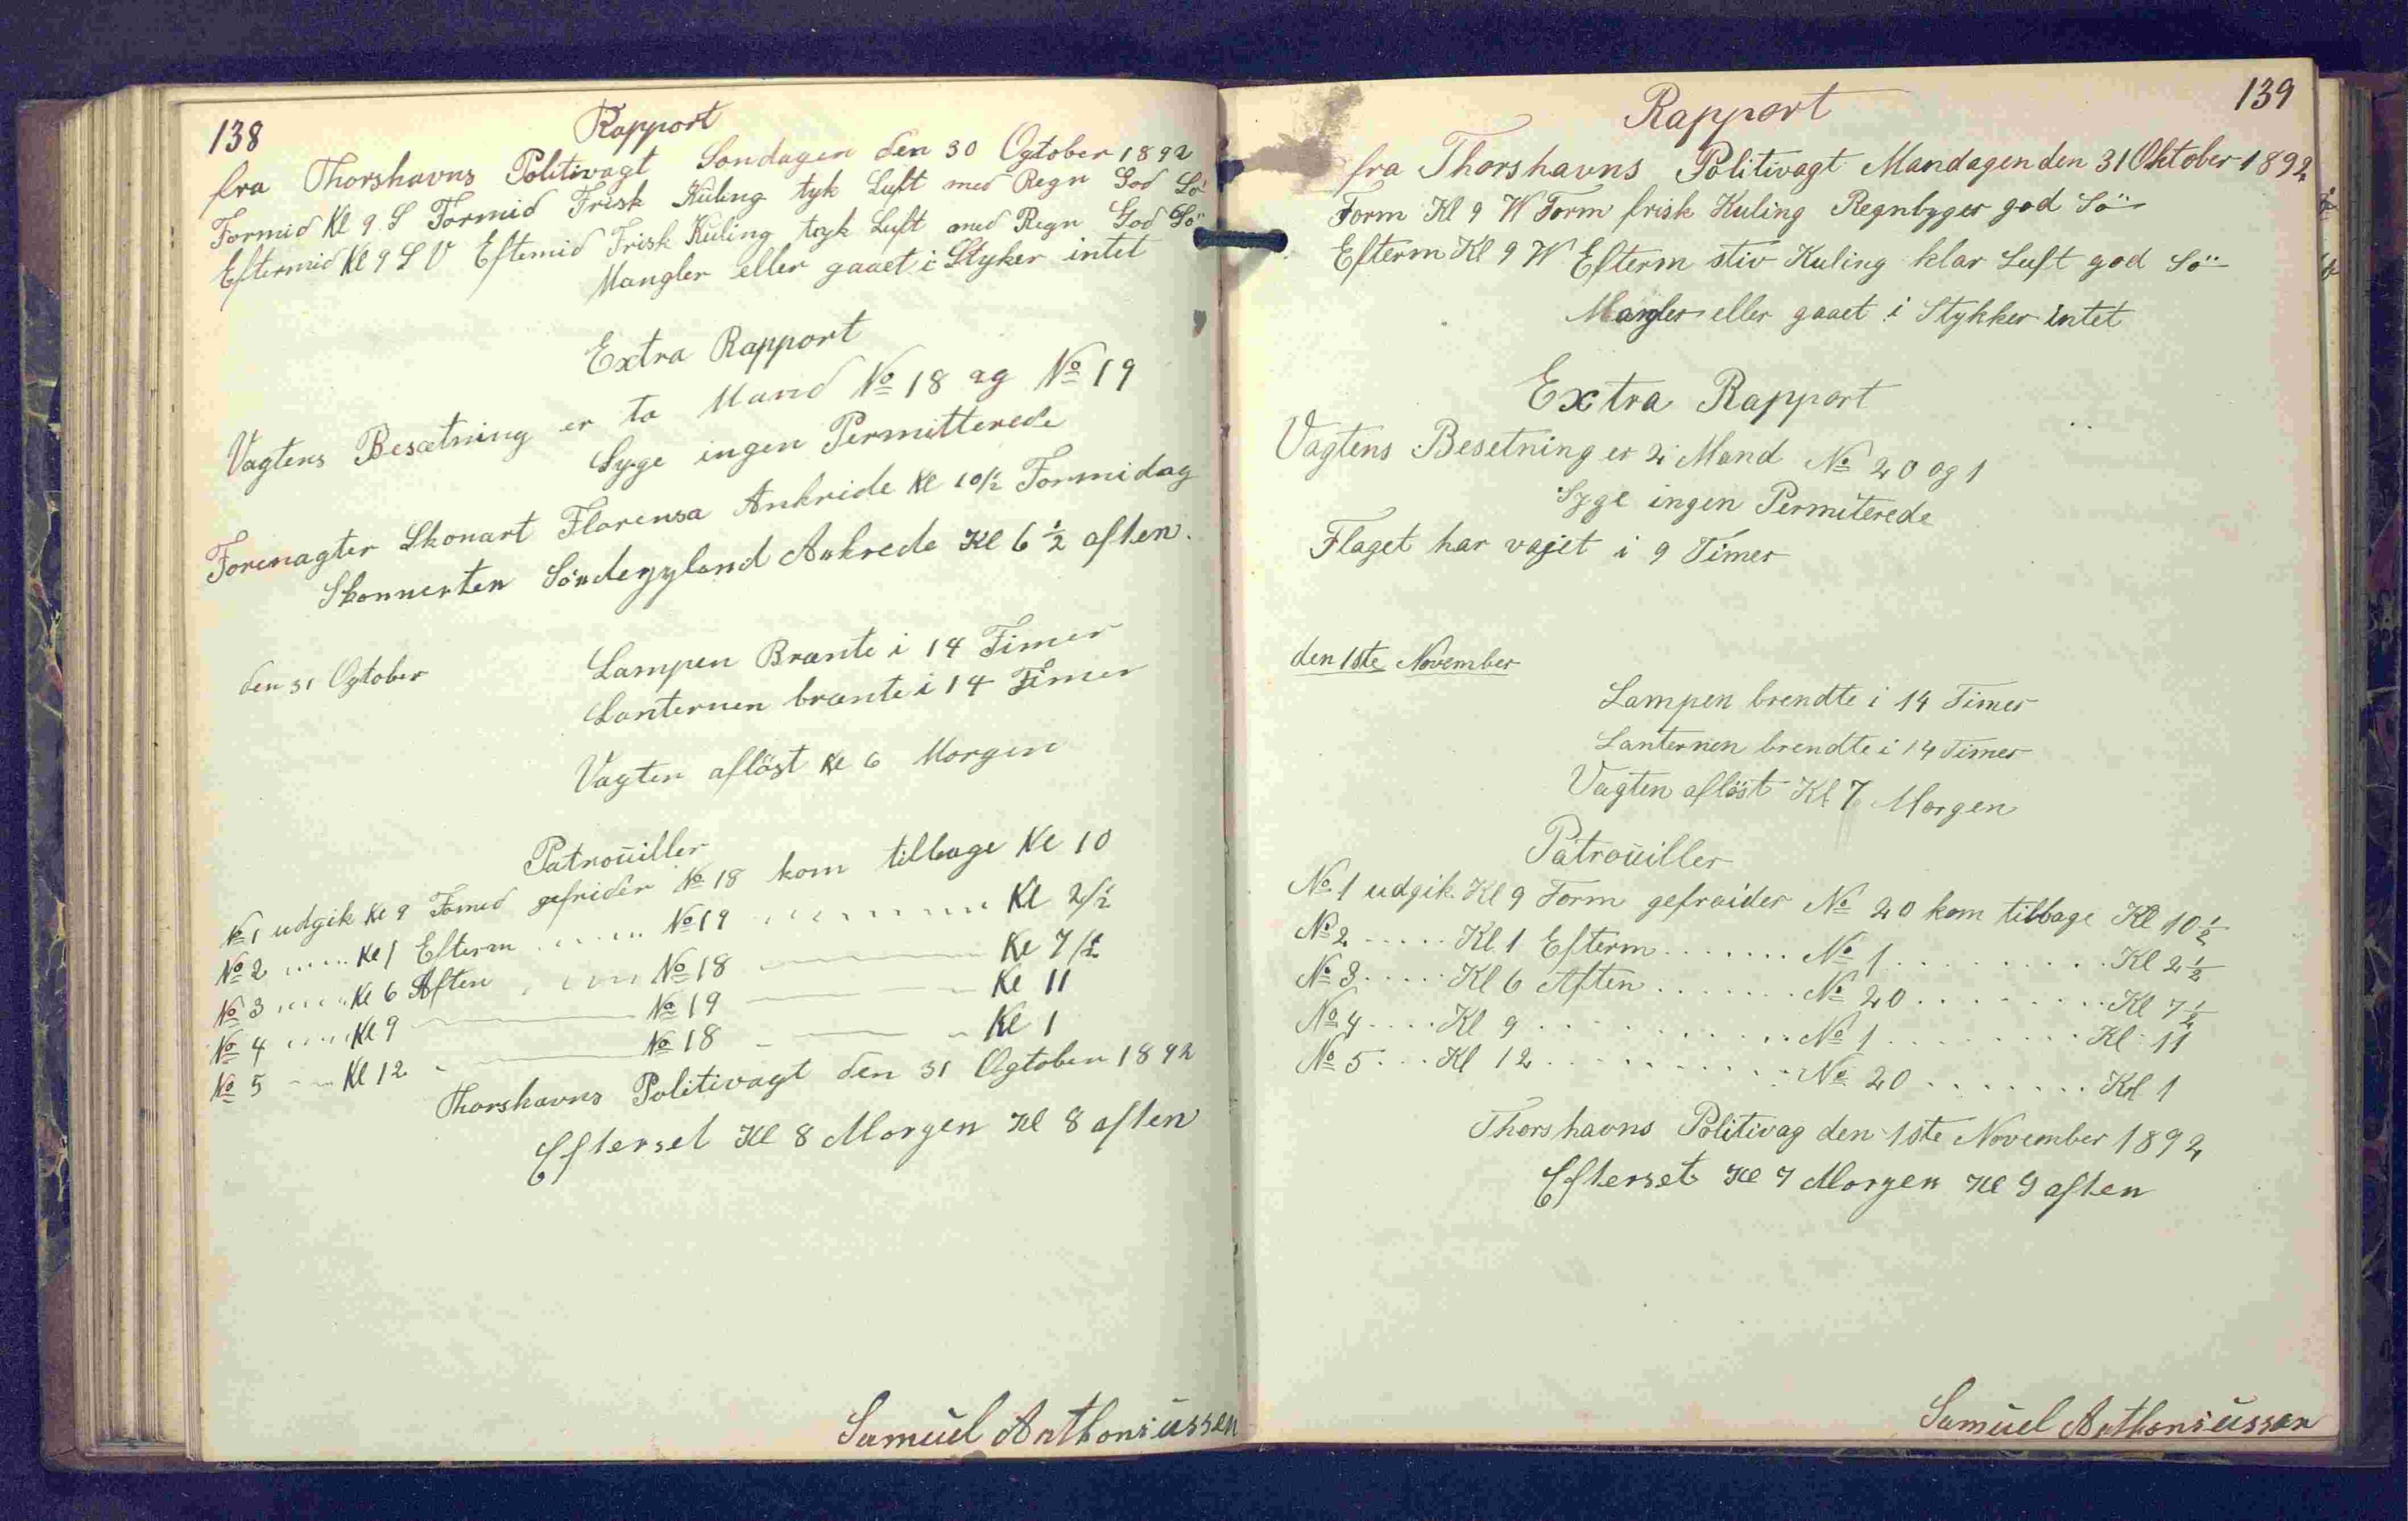 138
Rapport
fra Thorshavns Politivagt Søndagen den 30 Ogtober 1892
Formid Kl 9 S Formid Frisk Kuling tyk Luft med Regn God Sö
Eftermid Kl 9 S V Eftemid Frisk Kuling tyk Luft med Regn God Sö
Mangler eller gaaet i Styker intet
Extra Rapport
Vagtens Besætning er to Mand No 18 og No 19
Syge ingen Permitterede
Forenagter Skonart Florensa Ankride Kl 10½ Formidag
Skonnerten Sönderjyland Ankrede Kl 6 ½ aften.
den 31 Ogtober
Lampen Brænte i 14 Timer
Lanternen brænte i 14 Timer
Vagten aflöst Kl 6 Morgen
Patrouiller
No 1 udgik Kl 9 Fomed gefrider No 18 kom tilbage Kl 10
No 2 ...... Kl 1 Efterm ....... No 19 ......... Kl 2½
No 3 ...... Kl 6 Aften ..... No 18 ——— Kl 7½
No 4 ..... Kl 9 ——— No 19 ——— Kl 11
No 5 — Kl 12 ——— No 18 ——— Kl 1
Thorshavns Politivagt den 31 Ogtober 1892
Efterset Kl 8 Morgen Kl 8 aften
Samuel Anthoniussen
139
Rapport
fra Thorshavns Politivagt Mandagen den 31 Oktober 1892
Form Kl 9 W Form frisk Kuling Regnbyger god Sö
Efterm Kl 9 W Efterm stiv Kuling klar Luft god Sö
Mangler eller gaaet i Stykker intet
Extra Rapport
Vagtens Besetning er 2 Mand No 20 og 1
Syge ingen Permiterede
Flaget har vajet i 9 Timer
den 1ste November
Lampen brendte i 14 Timer
Lanternen brendte i 14 Timer
Vagten aflöst Kl 7 Morgen
Patrouiller
No 1 udgik Kl 9 Form gefraider No 20 kom tilbage Kl 10 ½
No 2 ..... Kl 1 Efterm ....... No 1 ......... Kl 2 ½
No 3 ..... Kl 6 Aften ....... No 20 ........ Kl 7 ½
No 4 .... Kl 9 ............ No 1 ........ Kl 11
No 5 ... Kl 12 ............ No 20 ....... Kl 1
Thorshavns Politivag den 1ste November 1892
Efterset Kl 7 Morgen Kl 9 aften
Samuel Anthoniussen